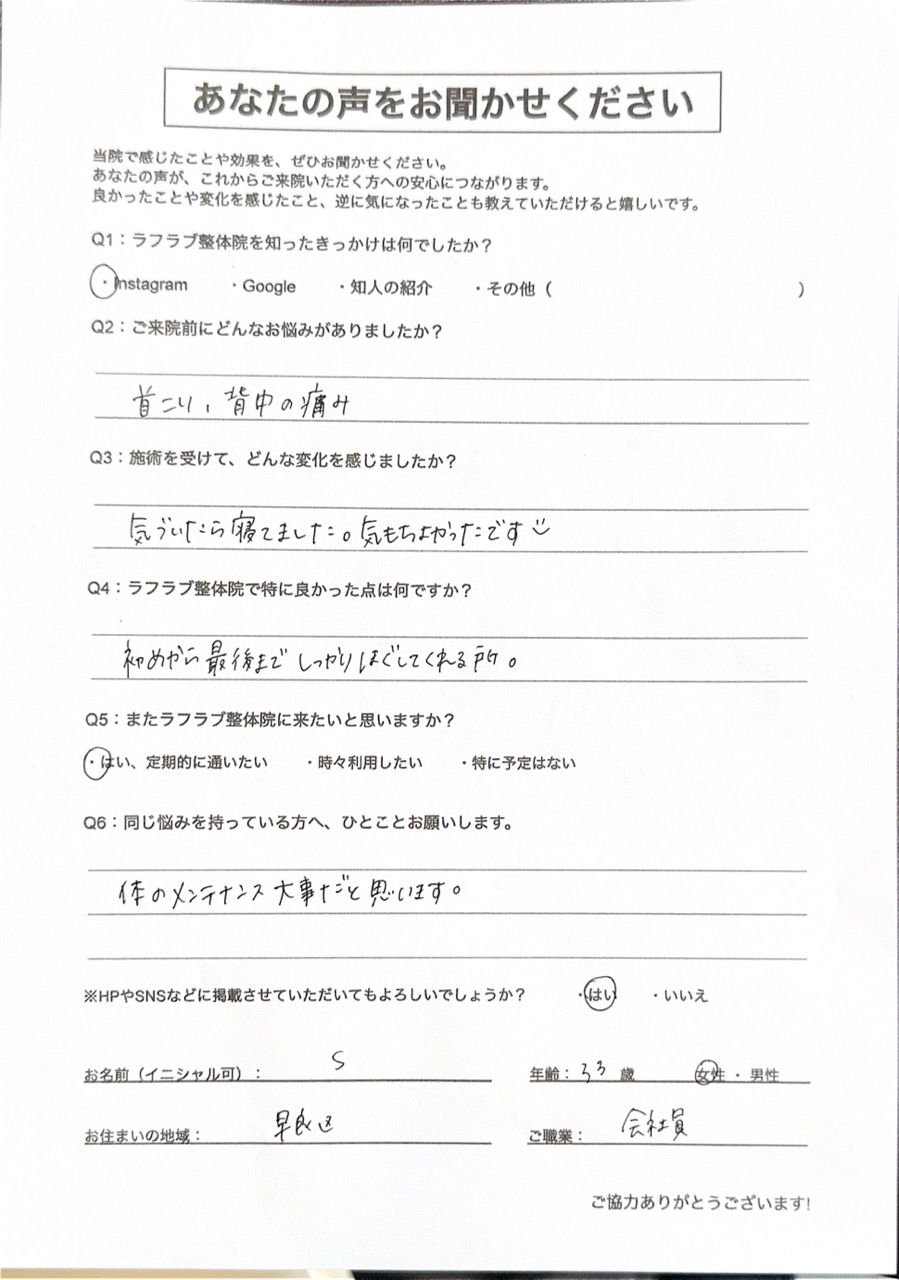 あなたの声をお聞かせください
当院で感じたことや効果を、ぜひお聞かせください。
あなたの声が、これからご来院いただく方への安心につながります。
良かったことや変化を感じたこと、逆に気になったことも教えていただけると嬉しいです。
Q1：ラフラブ整体院を知ったきっかけは何でしたか？
・Instagram ・Google ・知人の紹介 ・その他（ ）
Q2：ご来院前にどんなお悩みがありましたか？
首こり、背中の痛み
Q3：施術を受けて、どんな変化を感じましたか？
気づいたら寝てました。気もちよかったです
Q4：ラフラブ整体院で特に良かった点は何ですか？
初めから最後までしっかりほぐしてくれる所。
Q5：またラフラブ整体院に来たいと思いますか？
・はい、定期的に通いたい ・時々利用したい ・特に予定はない
Q6：同じ悩みを持っている方へ、ひとことお願いします。
体のメンテナンス大事だと思います。
※HPやSNSなどに掲載させていただいてもよろしいでしょうか？ ・はい ・いいえ
お名前（イニシャル可）： S 年齢：33 歳 女性 ・ 男性
お住まいの地域： 早良区 ご職業： 会社員
ご協力ありがとうございます!